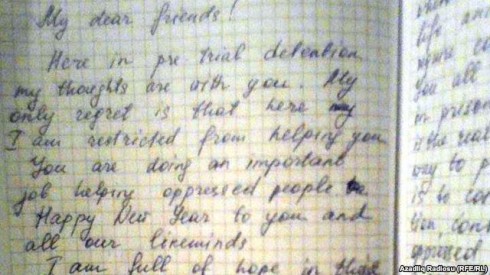 My dear friends!
Here in pre trial detention
my thoughts are with you. My
only regret is that here my
I am restricted from helping you
You are doing an important
job helping oppressed people
Happy New Year to you and
all our likeminds
I am full of hope in that
life and
you all
in prison
is the real
way to p
is to co
oppressed
Azadliq Radiosu (RFE/RL)